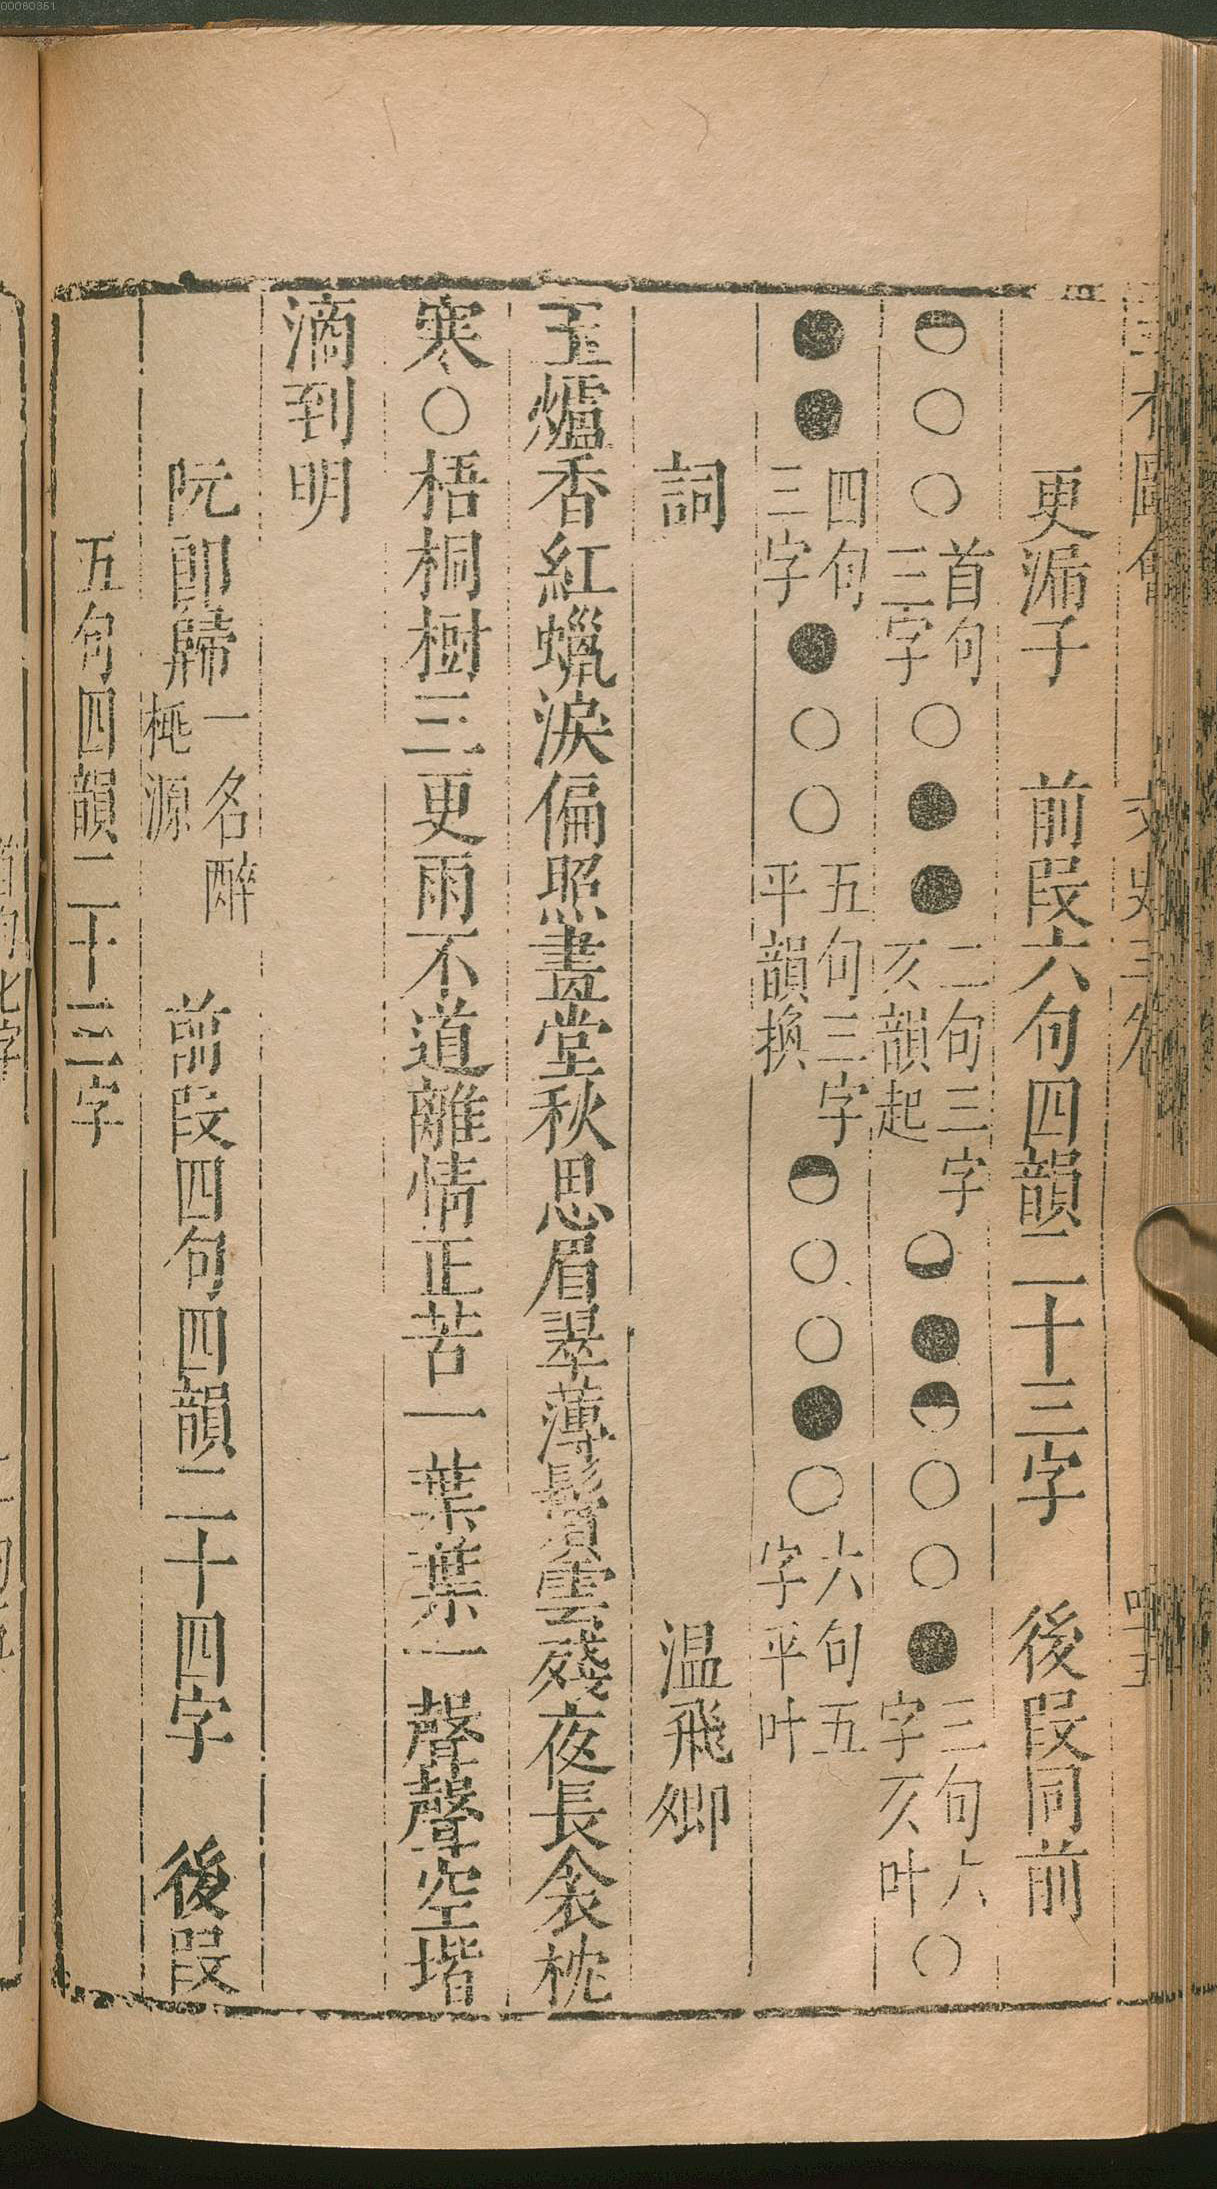 00060351
更漏子　前段六句四韻二十三字　後段同前
◓○○首句三字○●●二句三字仄韻起◒●◓○○●三句六字仄叶○
●●四句三字●○○五句三字平韻換◓○○●○六句五字平叶
詞　温飛卿
玉爐香紅蠟淚偏照畫堂秋思眉翠薄鬢雲殘夜長衾枕
寒○梧桐樹三更雨不道離情正苦一葉葉一聲聲空堦
滴到明
阮郎歸一名醉桃源　前段四句四韻二十四字　後段
五句四韻二十三字